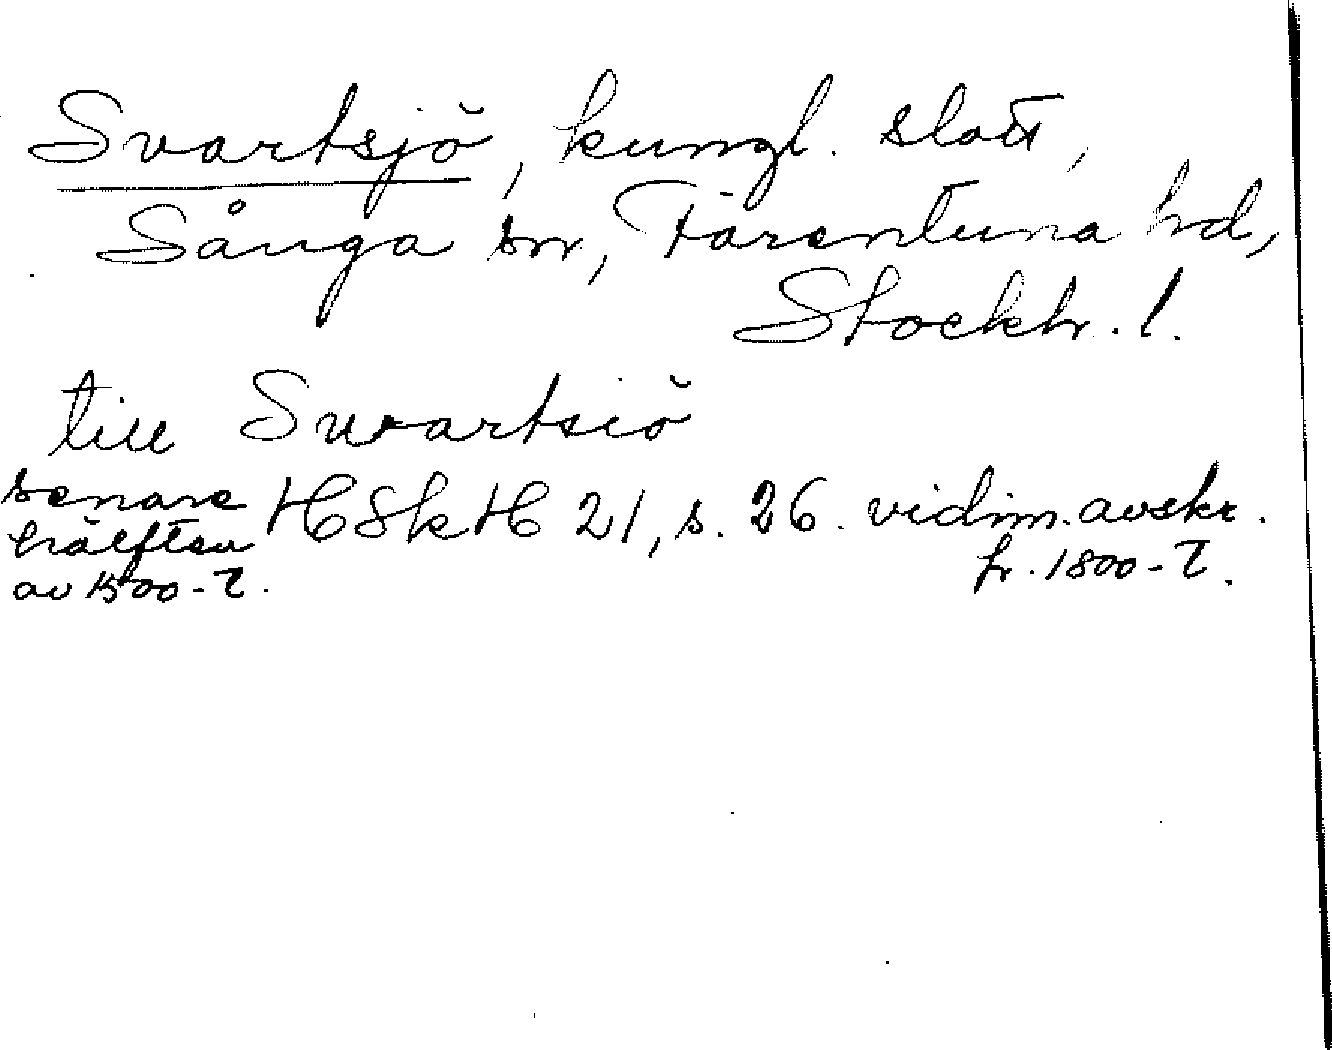 Svartsjö, kungl. slott,
Sånga sn, Färentuna hd,
Stockh. l.
till Swartsiö
senare hälften av 1500-t.
HSkH 21, s. 26. vidim. avskr. fr. 1800-t.